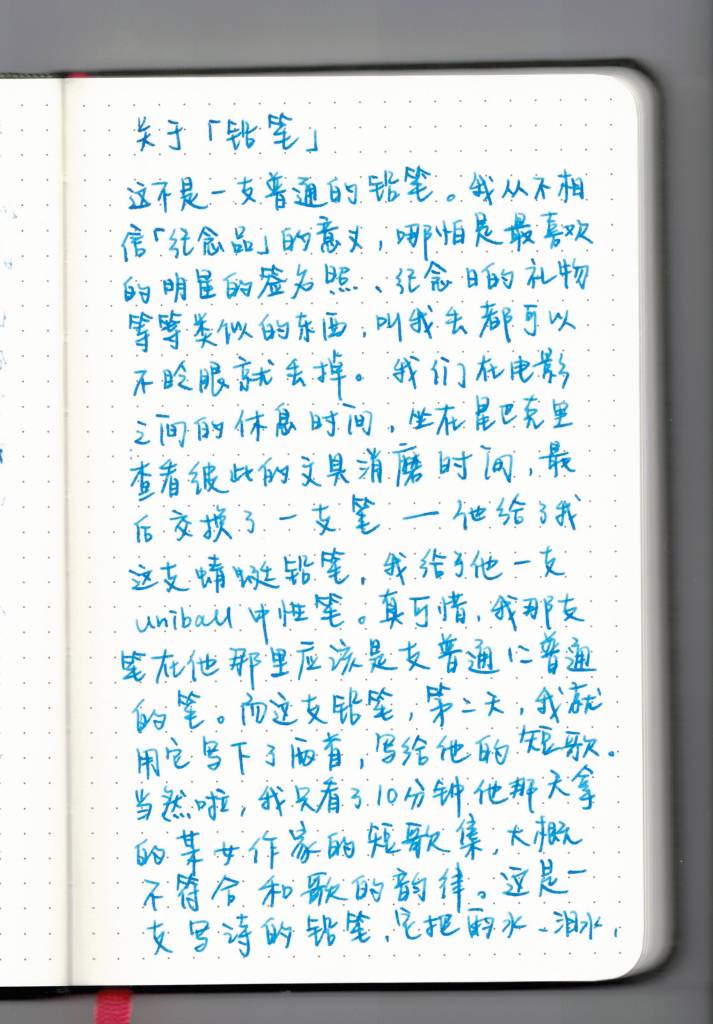 关于「铅笔」
这不是一支普通的铅笔。我从不相
信「纪念品」的意义，哪怕是最喜欢
的明星的签名照、纪念日的礼物
等等类似的东西，叫我丢都可以
不眨眼就丢掉。我们在电影
之间的休息时间，坐在星巴克里
查看彼此的文具消磨时间，最
后交换了一支笔 — 他给了我
这支蜻蜓铅笔，我给了他一支
uniball 中性笔。真可惜，我那支
笔在他那里应该是支普通仁普通
的笔。而这支铅笔，第二天，我就
用它写下了两首，写给他的短歌。
当然啦，我只看了10分钟他那天拿
的某女作家的短歌集，大概
不符合和歌的韵律。这是一
支写诗的铅笔，它把雨水、泪水，